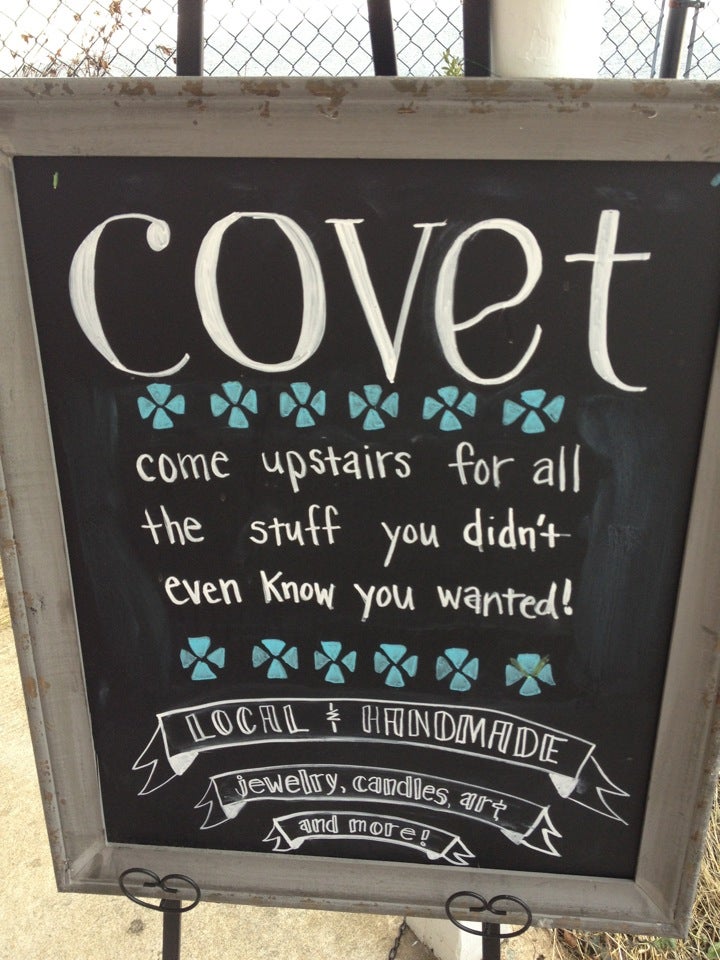 covet
come upstairs for all
the stuff you didn't
even know you wanted!
LOCAL & HANDMADE
jewelry, candles, art,
and more!